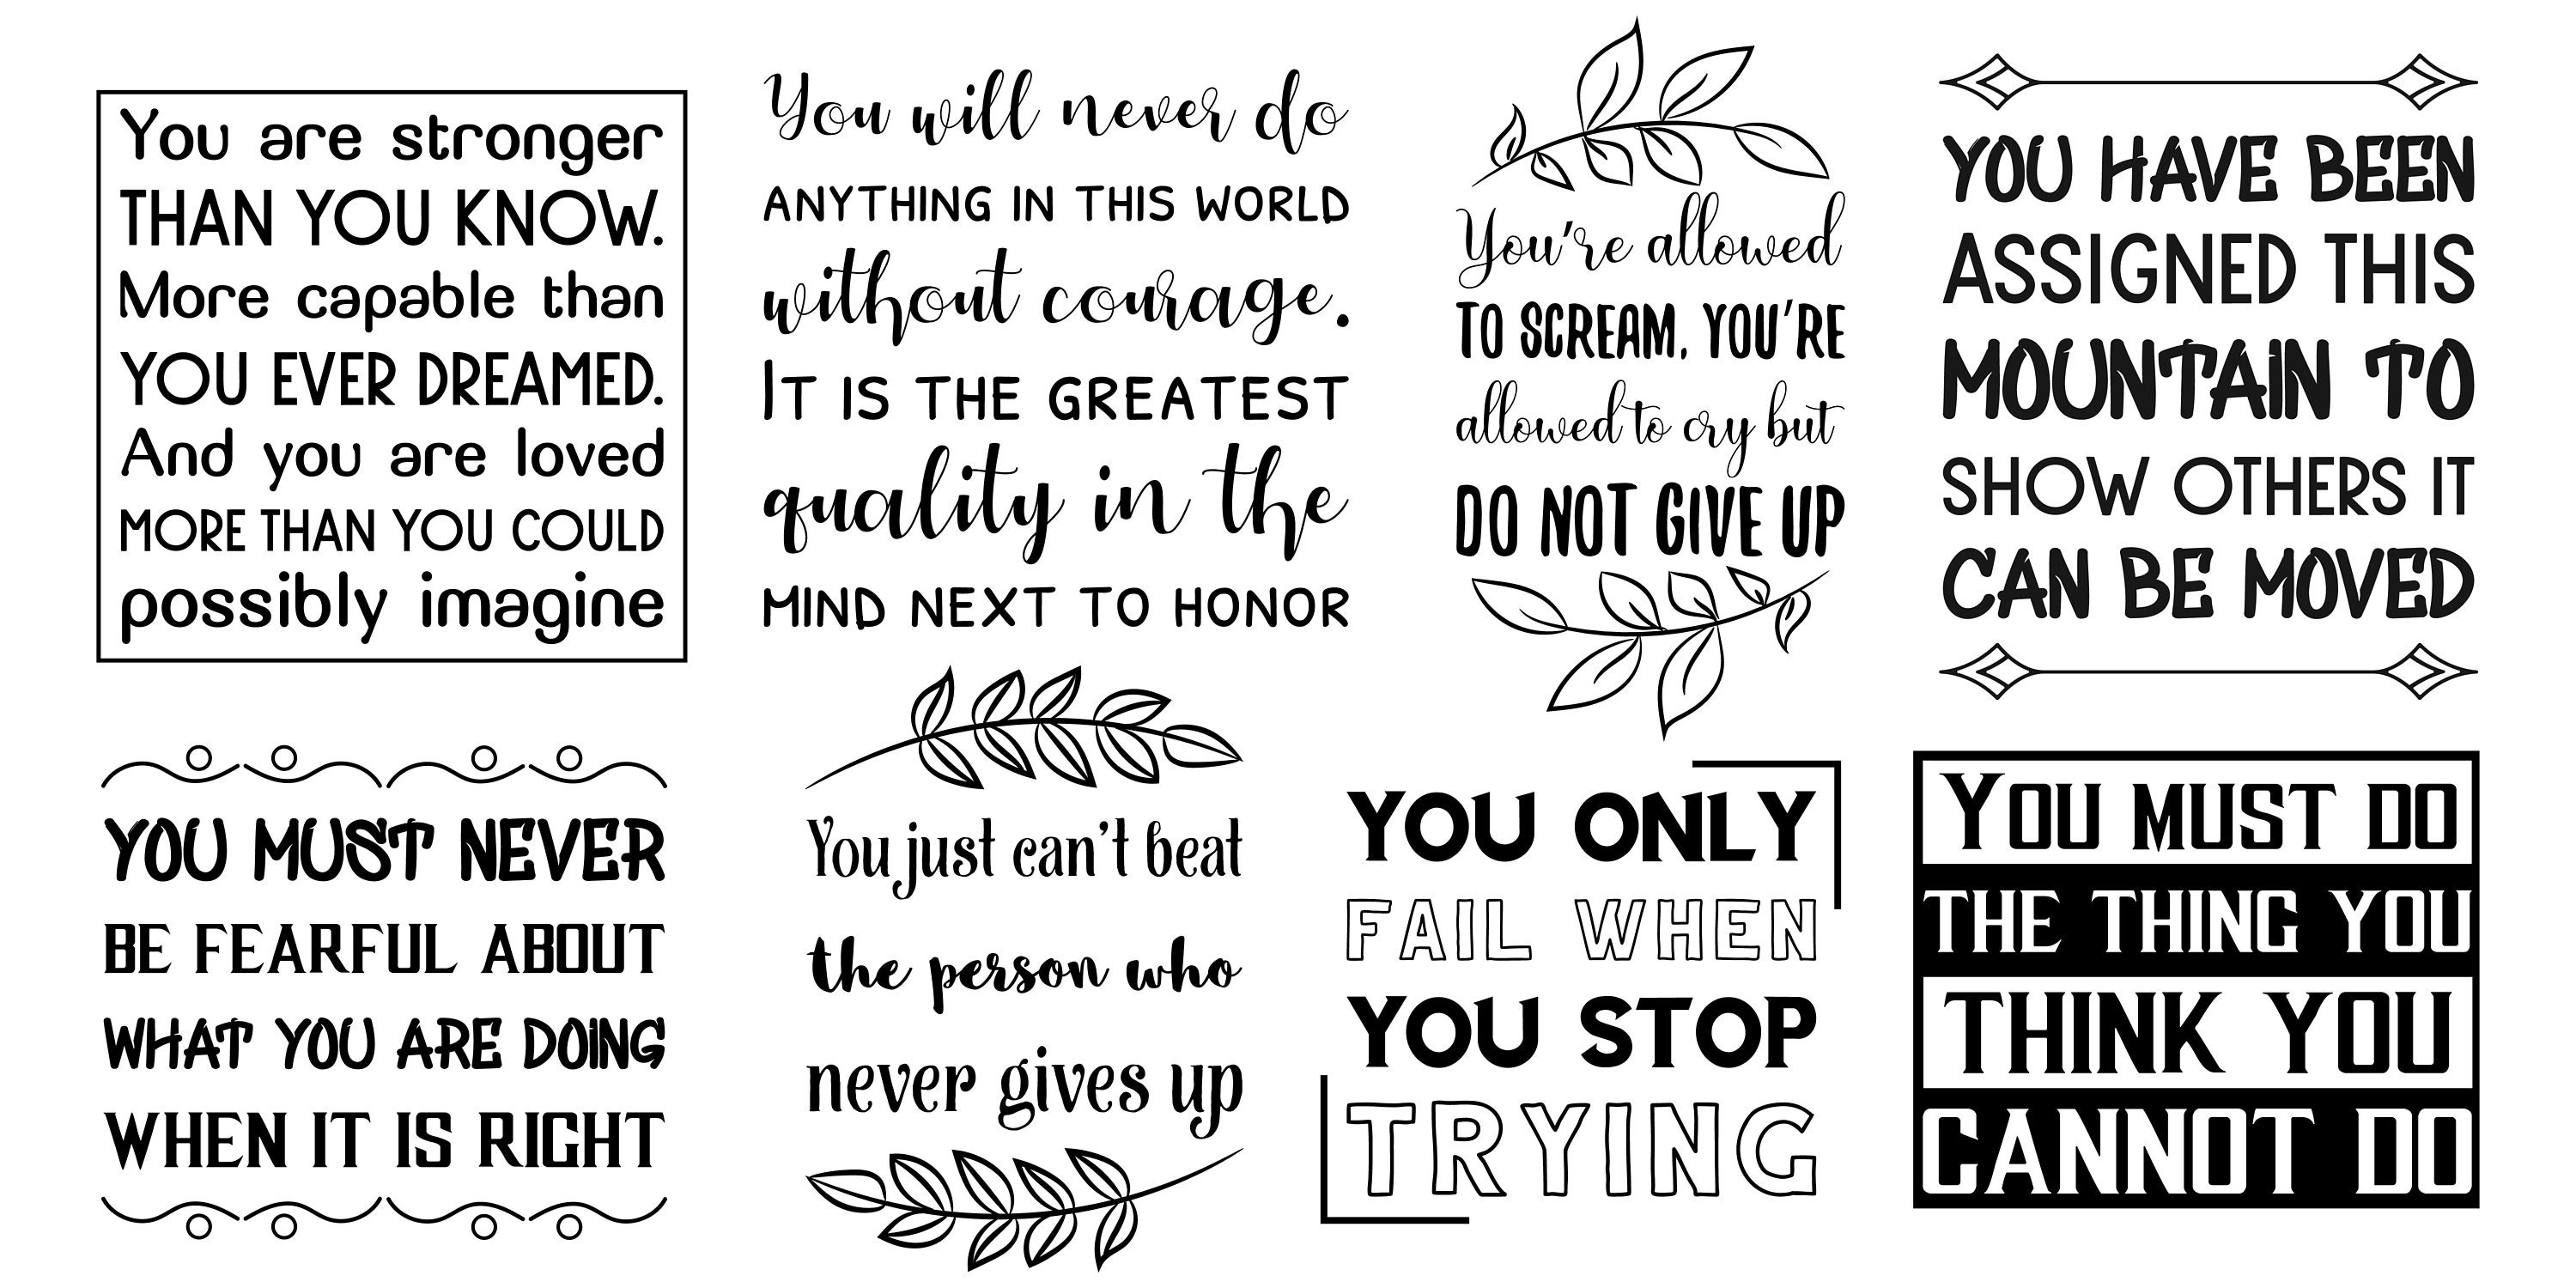 You are stronger
THAN YOU KNOW.
More capable than
YOU EVER DREAMED.
And you are loved
MORE THAN YOU COULD
possibly imagine
You will never do
ANYTHING IN THIS WORLD
without courage.
IT IS THE GREATEST
quality in the
MIND NEXT TO HONOR
You're allowed
TO SCREAM, YOU'RE
allowed to cry but
DO NOT GIVE UP
YOU HAVE BEEN
ASSIGNED THIS
MOUNTAIN TO
SHOW OTHERS IT
CAN BE MOVED
YOU MUST NEVER
BE FEARFUL ABOUT
WHAT YOU ARE DOING
WHEN IT IS RIGHT
You just can't beat
the person who
never gives up
YOU ONLY
FAIL WHEN
YOU STOP
TRYING
YOU MUST DO
THE THING YOU
THINK YOU
CANNOT DO